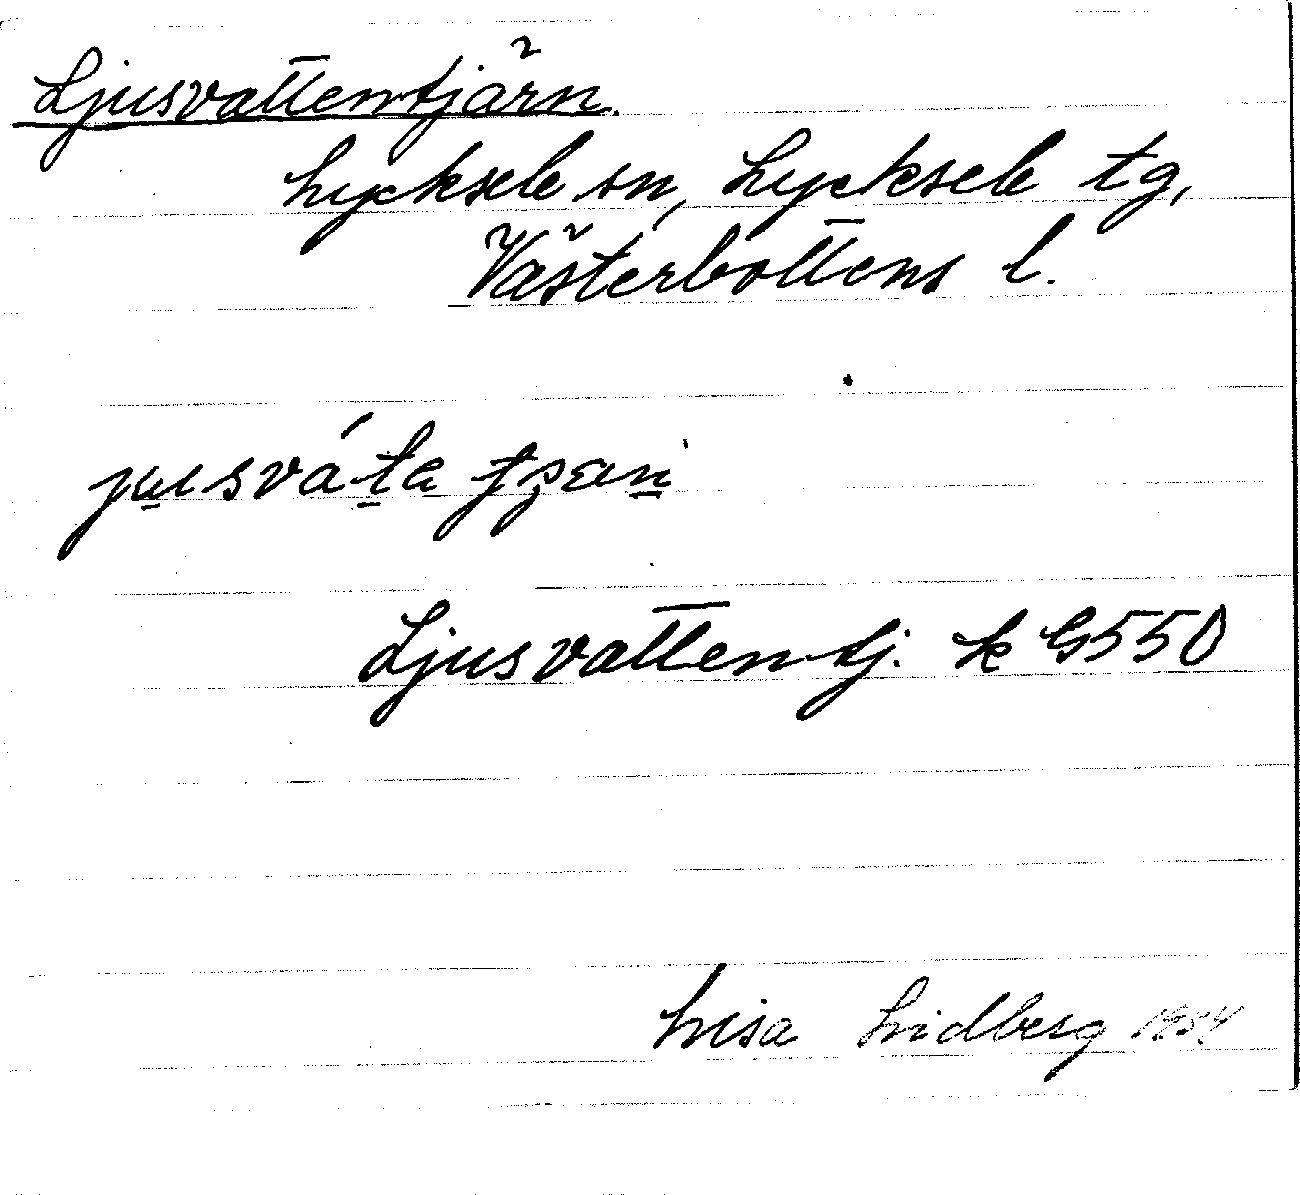 Ljusvattentjärn.
Lycksele sn, Lycksele tg,
Västerbottens l.
Ljusvattentj. k G550
Lisa Lidberg 1954